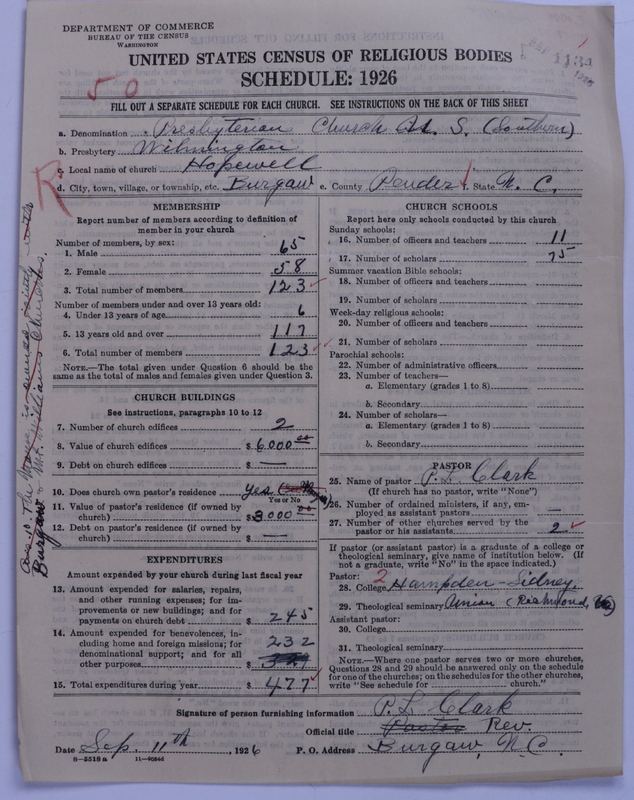 DEPARTMENT OF COMMERCE
BUREAU OF THE CENSUS
WASHINGTON
UNITED STATES CENSUS OF RELIGIOUS BODIES
SCHEDULE: 1926
50
FILL OUT A SEPARATE SCHEDULE FOR EACH CHURCH. SEE INSTRUCTIONS ON THE BACK OF THIS SHEET
a. Denomination Presbyterian Church U. S. (Southern)
b. Presbytery Wilmington
c. Local name of church Hopewell
d. City, town, village, or township, etc. Burgaw e. County Pender f. State N. C.
R
MEMBERSHIP
Report number of members according to definition of member in your church
Number of members, by sex:
1. Male 65
2. Female 58
3. Total number of members 123
Number of members under and over 13 years old:
4. Under 13 years of age 6
5. 13 years old and over 117
6. Total number of members 123
NOTE.—The total given under Question 6 should be the
same as the total of males and females given under Question 3.
CHURCH BUILDINGS
See instructions, paragraphs 10 to 12
7. Number of church edifices 2
8. Value of church edifices $ 6000.00
9. Debt on church edifices $ —
10. Does church own pastor's residence yes
Yes or No
11. Value of pastor's residence (if owned by
church) $ 3000.00
12. Debt on pastor's residence (if owned by
church) $ —
EXPENDITURES
Amount expended by your church during last fiscal year
13. Amount expended for salaries, repairs,
and other running expenses; for im-
provements or new buildings; and for
payments on church debt $ 245
14. Amount expended for benevolences, in-
cluding home and foreign missions; for
denominational support; and for all
other purposes $ 232
15. Total expenditures during year $ 477
CHURCH SCHOOLS
Report here only schools conducted by this church
Sunday schools:
16. Number of officers and teachers 11
17. Number of scholars 75
Summer vacation Bible schools:
18. Number of officers and teachers
19. Number of scholars
Week-day religious schools:
20. Number of officers and teachers
21. Number of scholars
Parochial schools:
22. Number of administrative officers
23. Number of teachers—
a. Elementary (grades 1 to 8)
b. Secondary
24. Number of scholars—
a. Elementary (grades 1 to 8)
b. Secondary
PASTOR
25. Name of pastor P. L. Clark
(If church has no pastor, write "None")
26. Number of ordained ministers, if any, em-
ployed as assistant pastors —
27. Number of other churches served by the
pastor or his assistants 2
If pastor (or assistant pastor) is a graduate of a college or
theological seminary, give name of institution below. (If
not a graduate, write "No" in the space indicated.)
Pastor: 2
28. College Hampden-Sidney
29. Theological seminary Union (Richmond, Va)
Assistant pastor:
30. College
31. Theological seminary
NOTE.—Where one pastor serves two or more churches,
Questions 28 and 29 should be answered only on the schedule
for one of the churches; on the schedules for the other churches,
write "See schedule for church."
Signature of person furnishing information P. L. Clark
Official title Pastor Rev.
Date Sep. 11th, 1926 P. O. Address Burgaw, N.C.
8-5518 a
Ans. 10. The Manse is owned jointly with
Burgaw & Mt. Williams Churches.